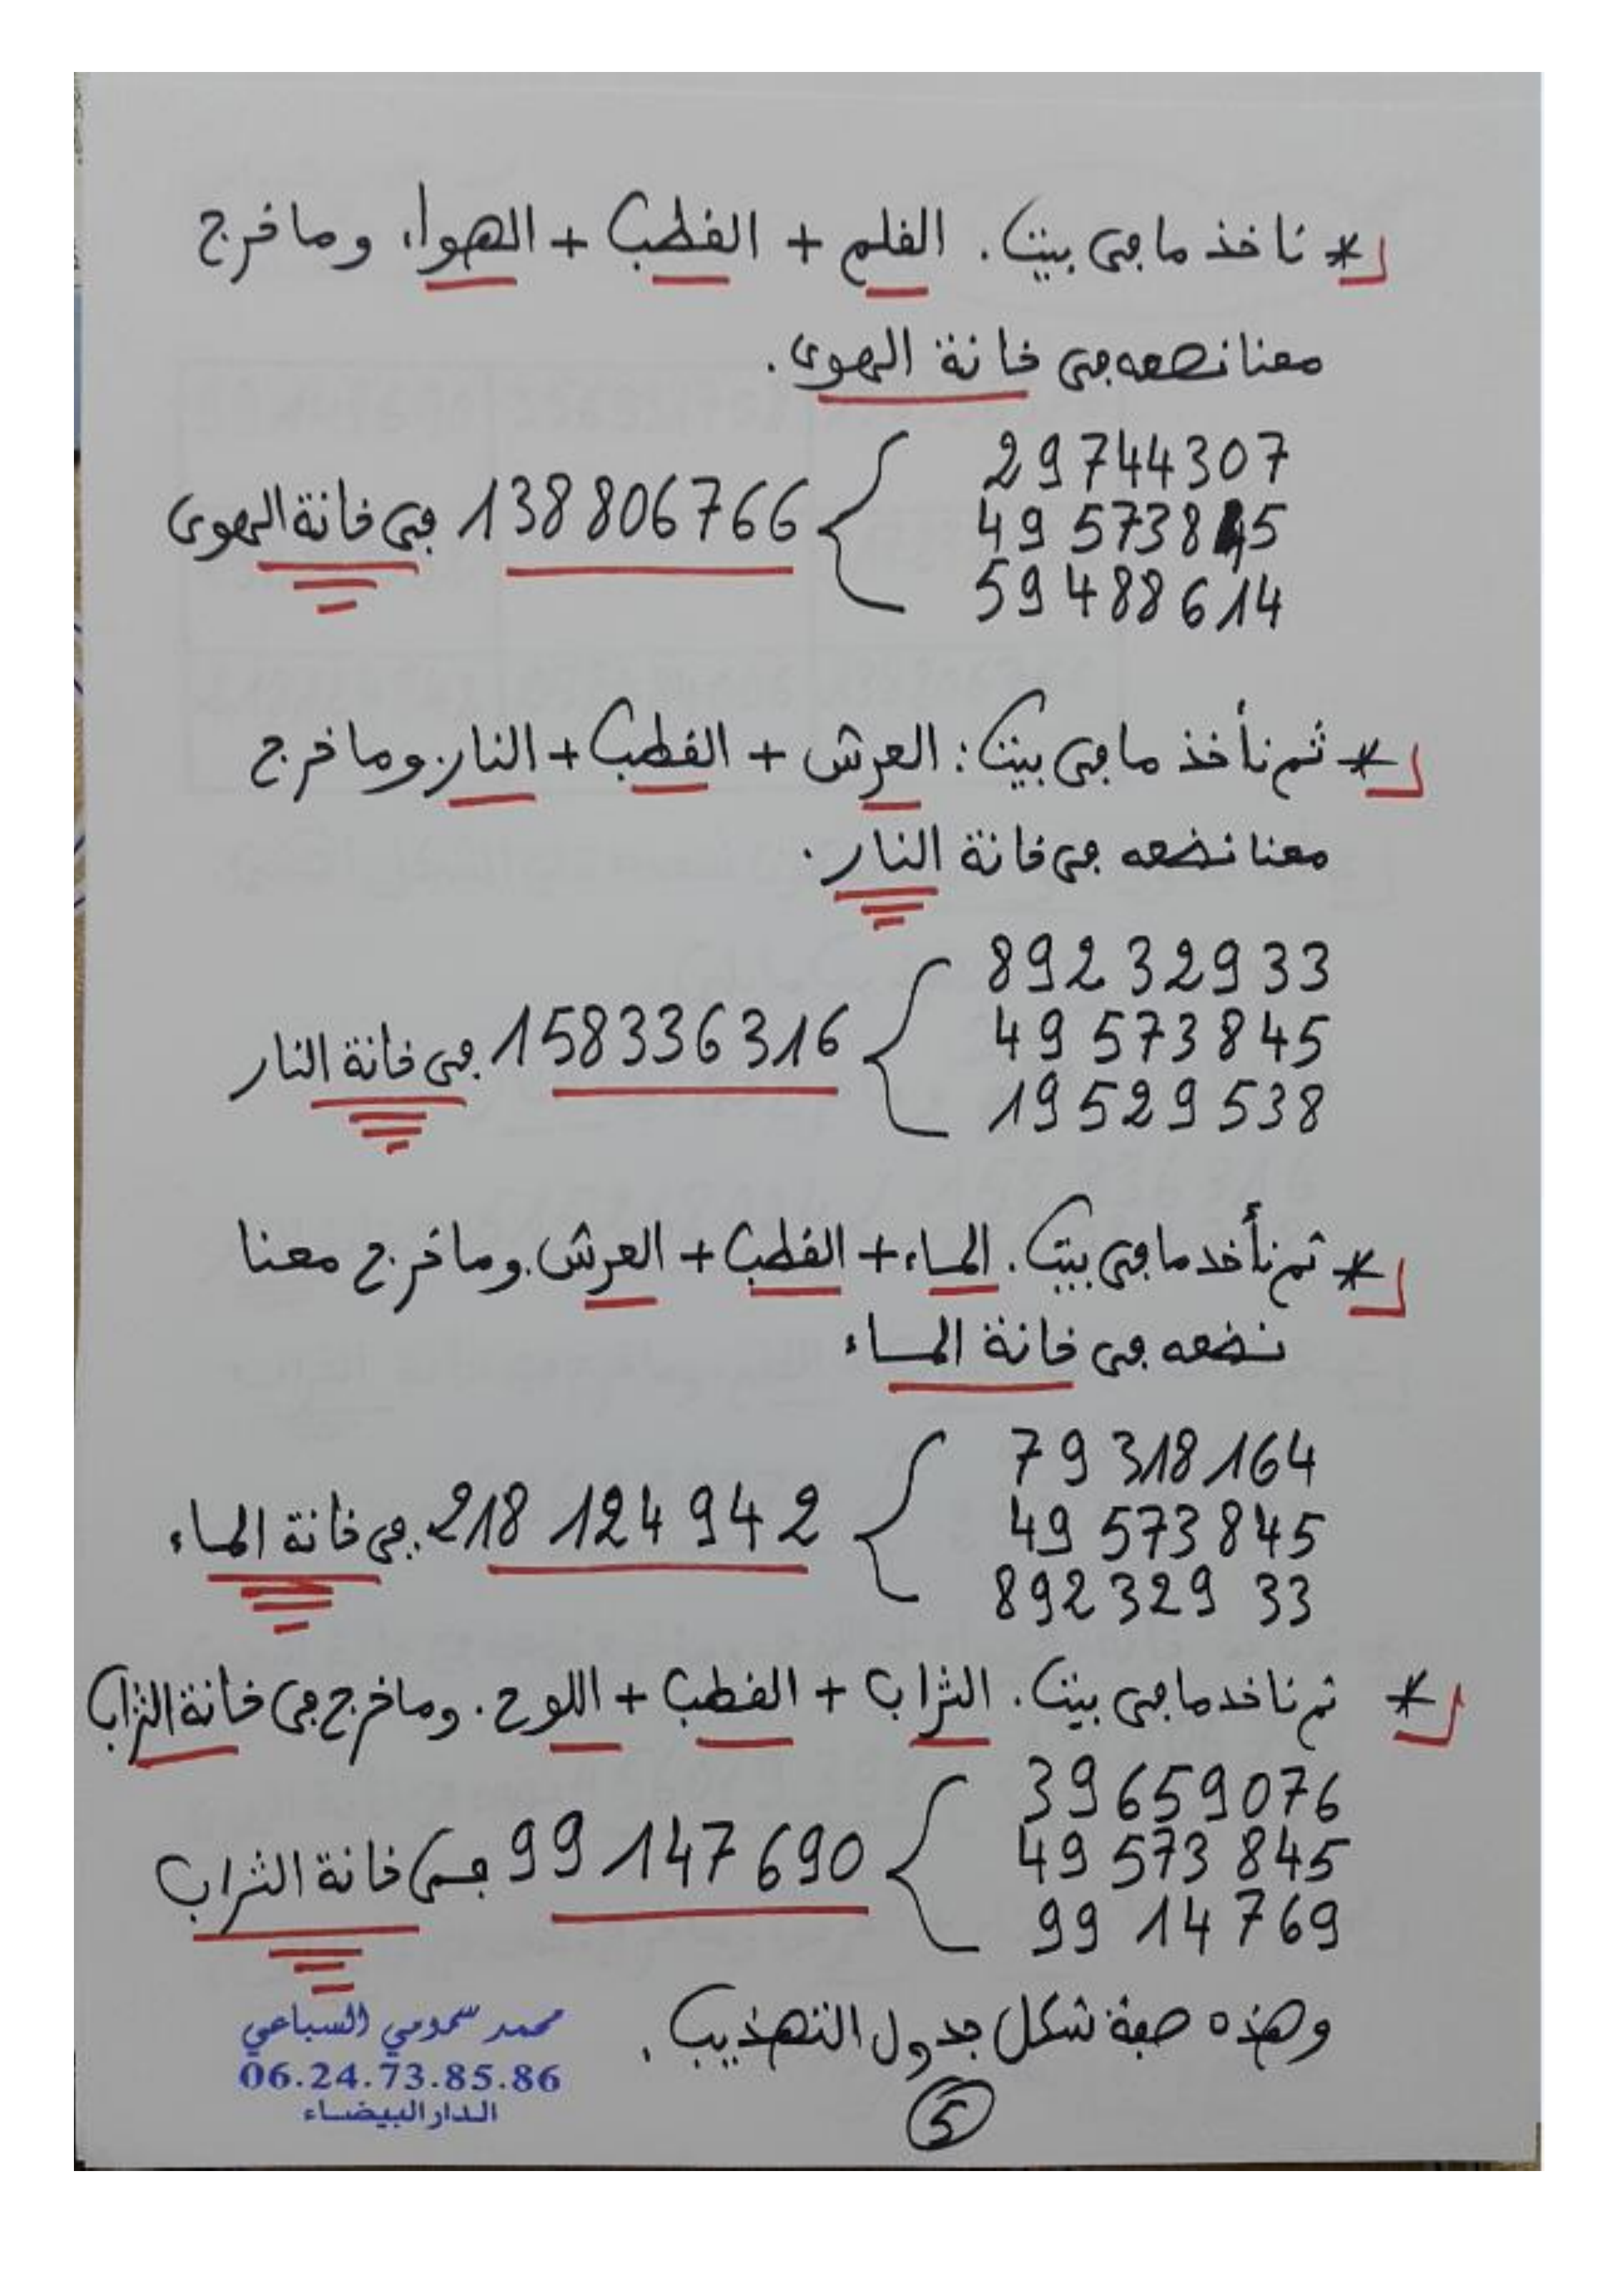 * ناخذ ما في بيت. القلم + القطب + الهواء وما خرج
معنا نضعه في خانة الهوى.
29744307
49573845
59488614
138806766 في خانة الهوى
* ثم نأخذ ما في بيت: العرش + القطب + النار. وما خرج
معنا نضعه في خانة النار.
89232933
49573845
19529538
158336316 في خانة النار
* ثم نأخد ما في بيت. الماء + القطب + العرش. وما خرج معنا
نضعه في خانة الماء
79318164
49573845
89232933
218124942 في خانة الماء
* ثم ناخد ما في بيت. التراب + القطب + اللوح. وما خرج في خانة التراب
39659076
49573845
9914769
99147690 في خانة التراب
وهذه صفة شكل جدول التهذيب.
محمد سمومي السباعي
06.24.73.85.86
الدار البيضاء
5